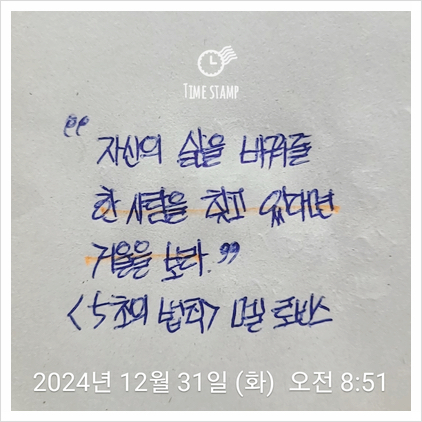 TIME STAMP
“자신의 삶을 바꿔줄
한 사람을 찾고 있다면
거울을 보라.”
<5초의 법칙> 멜 로빈스
2024년 12월 31일 (화) 오전 8:51